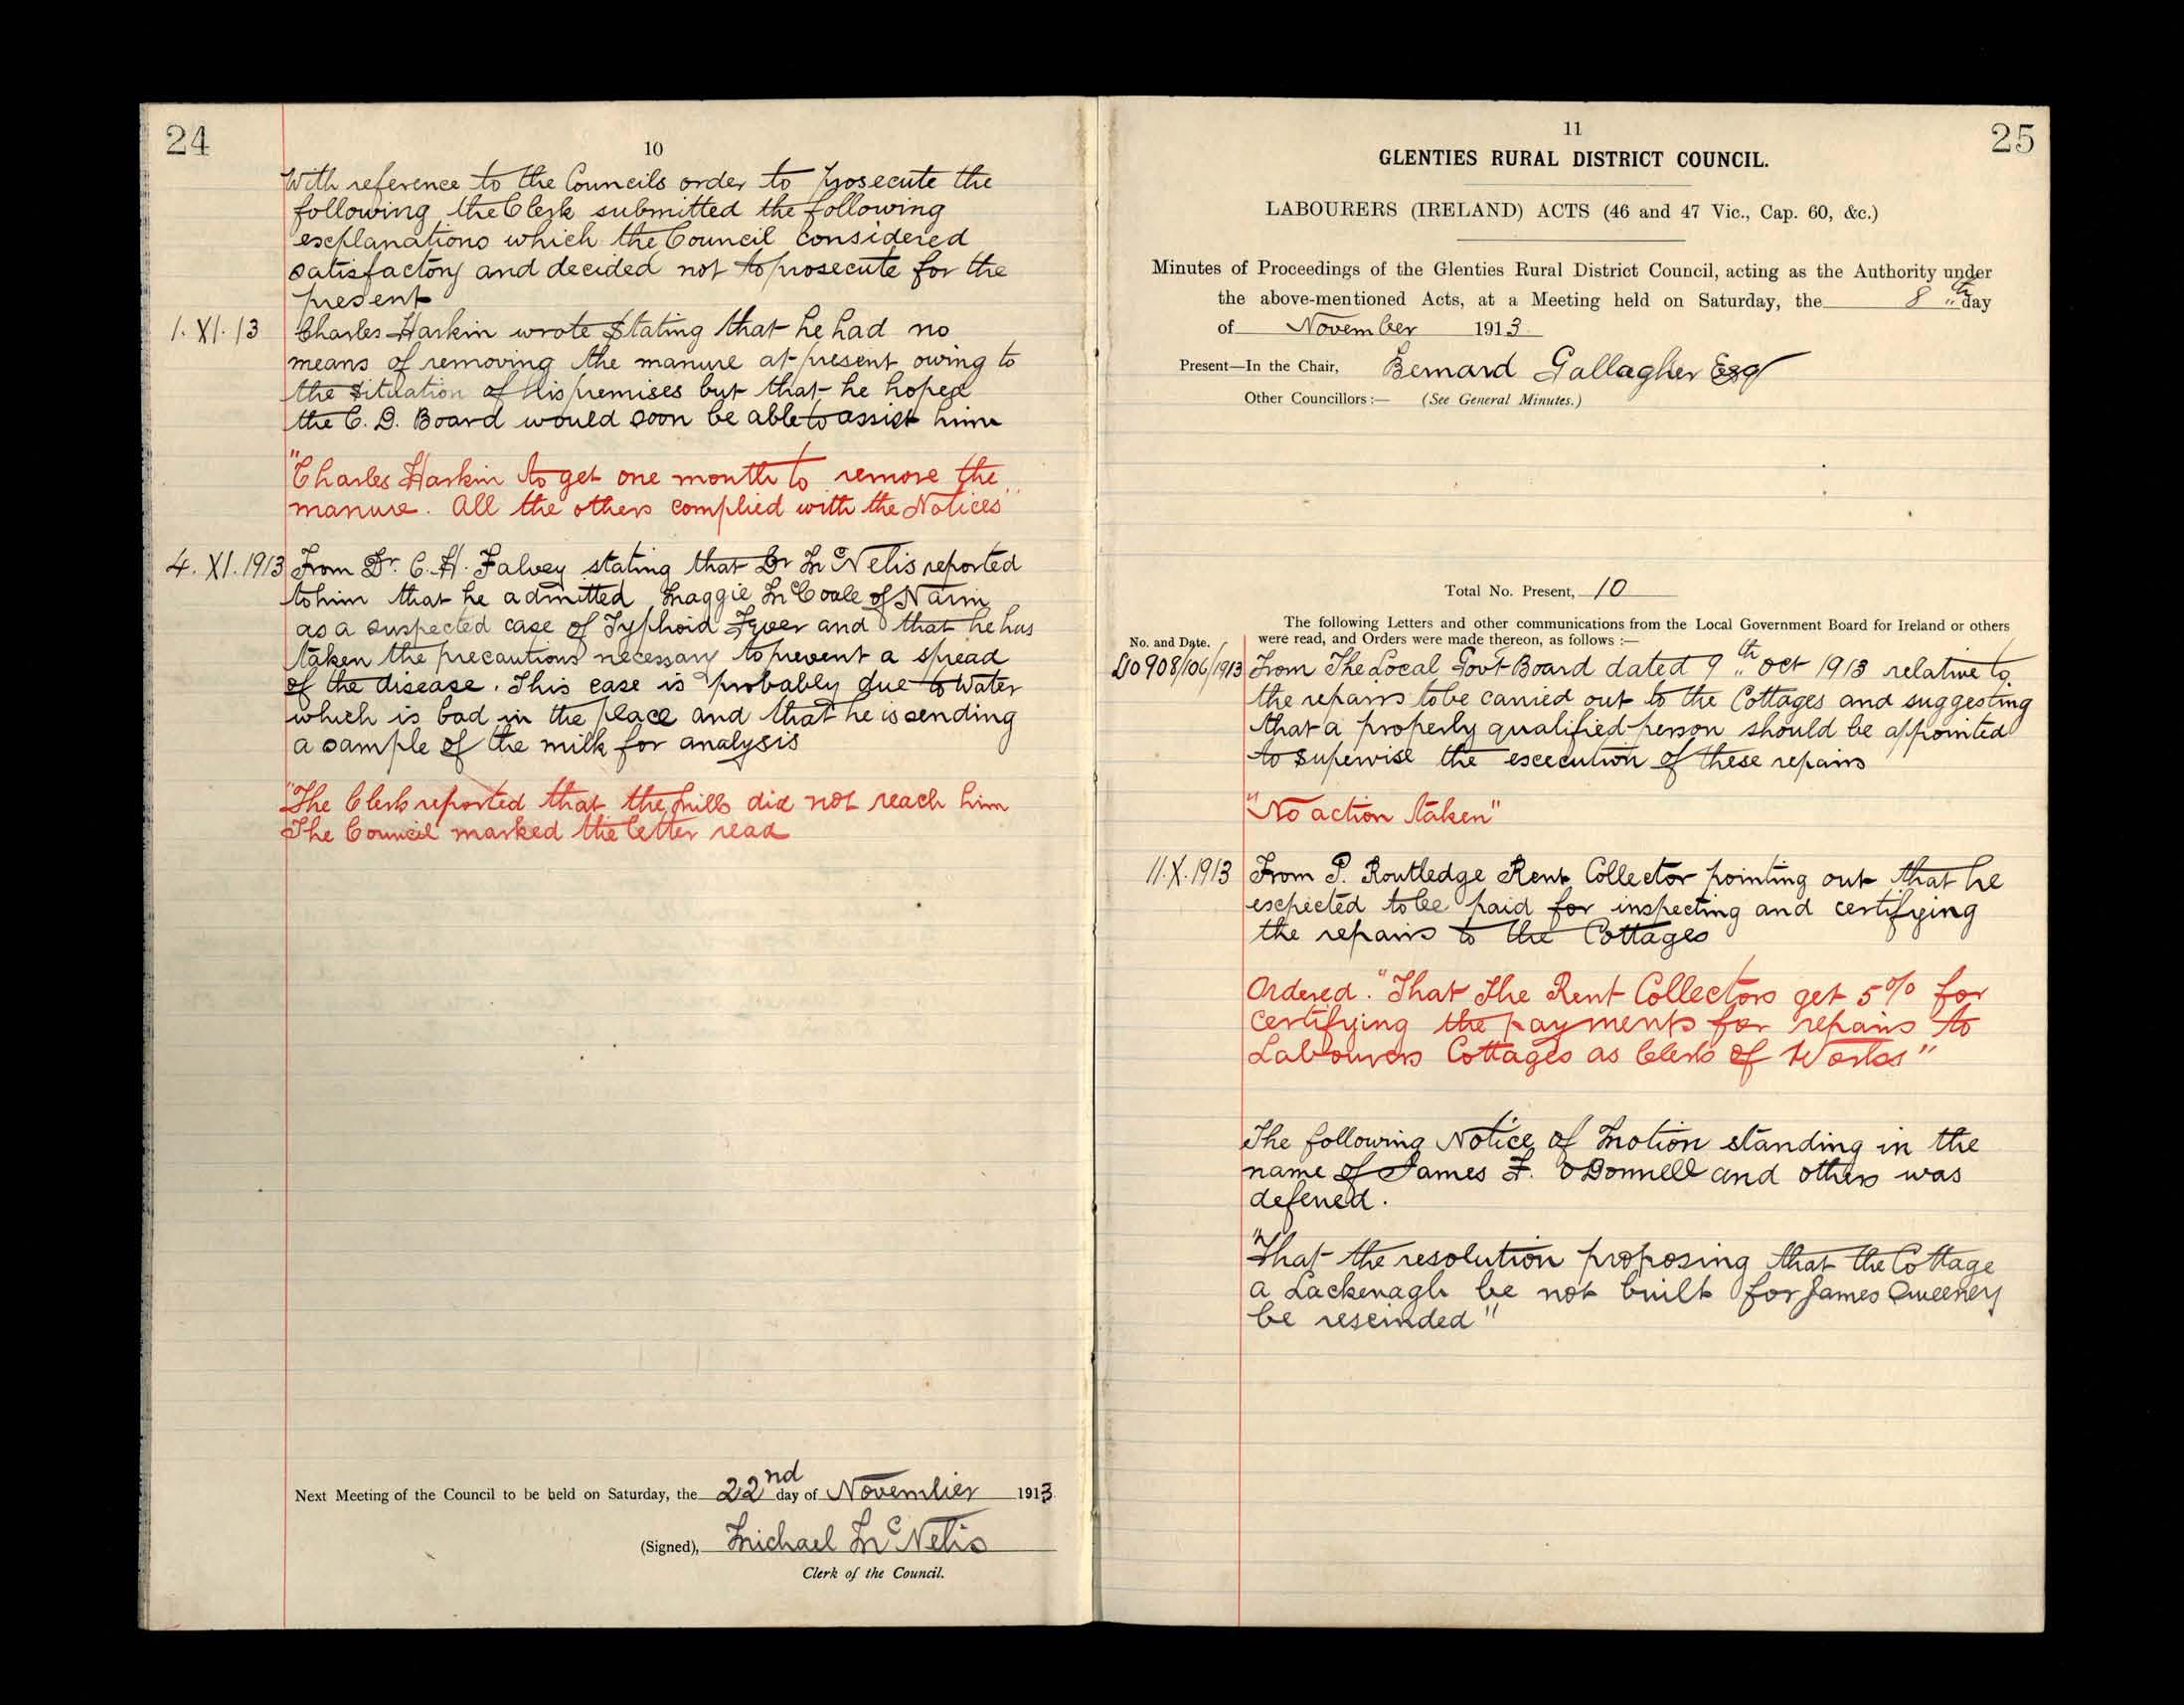 24
10
With reference to the Councils order to prosecute the
following the Clerk submitted the following
explanations which the Council considered
satisfactory and decided not to prosecute for the
present
1. XI. 13 Charles Harkin wrote stating that he had no
means of removing the manure at present owing to
the situation of his premises but that he hoped
the C. D. Board would soon be able to assist him
"Charles Harkin to get one month to remove the
manure. All the others complied with the Notices"
4. XI. 1913 From Dr. C. H. Falvey stating that Dr McNelis reported
to him that he admitted Maggie McCoale of Narin
as a suspected case of Typhoid Fever and that he has
taken the precautions necessary to prevent a spread
of the disease. This case is probably due to Water
which is bad in the place and that he is sending
a sample of the milk for analysis
"The Clerk reported that the milk did not reach him
The Council marked the letter read
Next Meeting of the Council to be held on Saturday, the 22nd day of November 1913
(Signed), Michael McNelis
Clerk of the Council.
25
11
GLENTIES RURAL DISTRICT COUNCIL.
LABOURERS (IRELAND) ACTS (46 and 47 Vic., Cap. 60, &c.)
Minutes of Proceedings of the Glenties Rural District Council, acting as the Authority under
the above-mentioned Acts, at a Meeting held on Saturday, the 8th day
of November 1913
Present—In the Chair, Bernard Gallagher Esq
Other Councillors:— (See General Minutes.)
Total No. Present, 10
The following Letters and other communications from the Local Government Board for Ireland or others
No. and Date. were read, and Orders were made thereon, as follows:—
908/106/1913 From The Local Govt Board dated 9th Oct 1913 relative to
the repairs to be carried out to the Cottages and suggesting
that a properly qualified person should be appointed
to supervise the execution of these repairs
"No action taken"
11.X.1913 From P. Routledge Rent Collector pointing out that he
expected to be paid for inspecting and certifying
the repairs to the Cottages
Ordered. "That the Rent Collectors get 5% for
certifying the payments for repairs to
Labourers Cottages as Clerk of Works"
The following Notice of Motion standing in the
name of James F. O'Donnell and others was
deferred.
"That the resolution proposing that the Cottage
a Lackenagh be not built for James Sweeney
be rescinded"